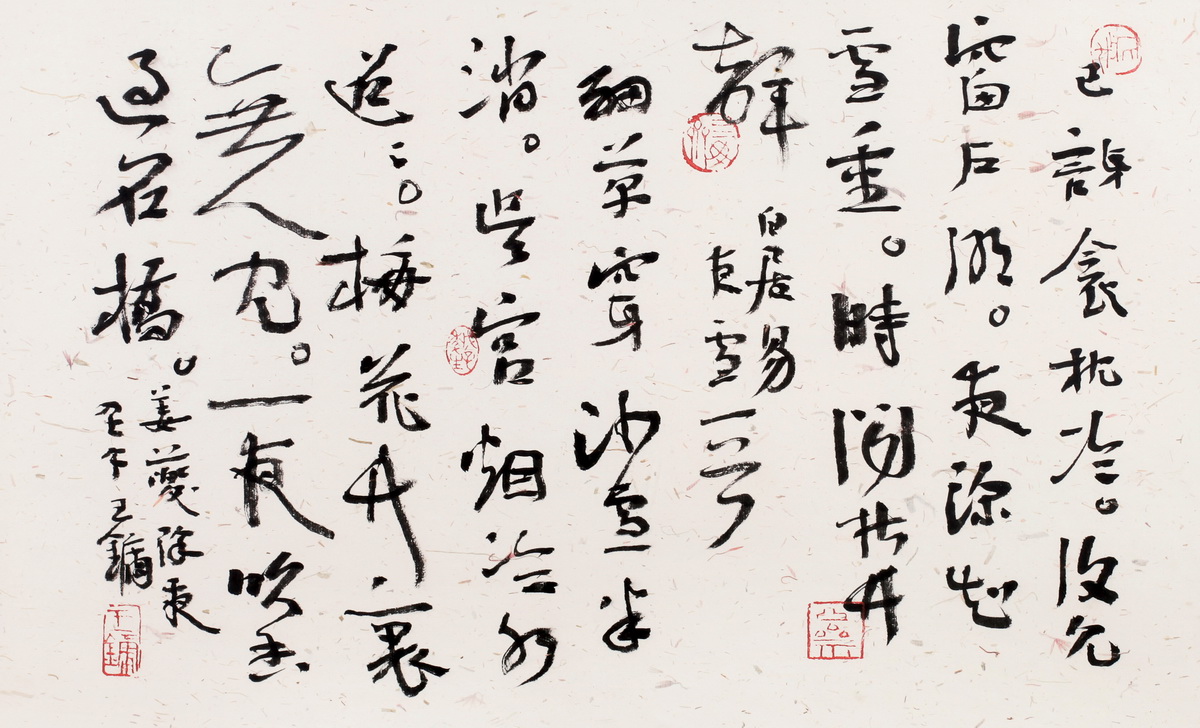 已訝衾枕冷。復見
窗户明。夜深知
雪重。時聞折竹
聲
白居易
夜雪
細草穿沙雪半
消。吳宮烟冷水
迢〻。梅花竹裏
無人見。一夜吹香
過石橋。
姜夔除夜
壬午王鏞
王鏞